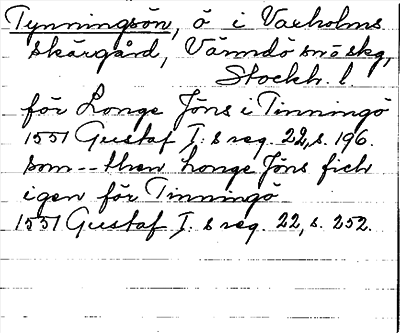 Tynningsön, ö i Vaxholms
skärgård, Värmdö snö skg,
Stockh. l.
för Longe Jöns i Tinningö
1551 Gustaf I:s reg. 22, s. 196.
som -- then Longe Jöns fich
igen för Tinningö
1551 Gustaf I:s reg. 22, s. 252.